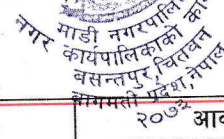 माडी नगरपालि
नगर कार्यपालिकाको का
बसन्तपुर, चितवन
बागमती प्रदेश, नेपाल
२०७३
आ